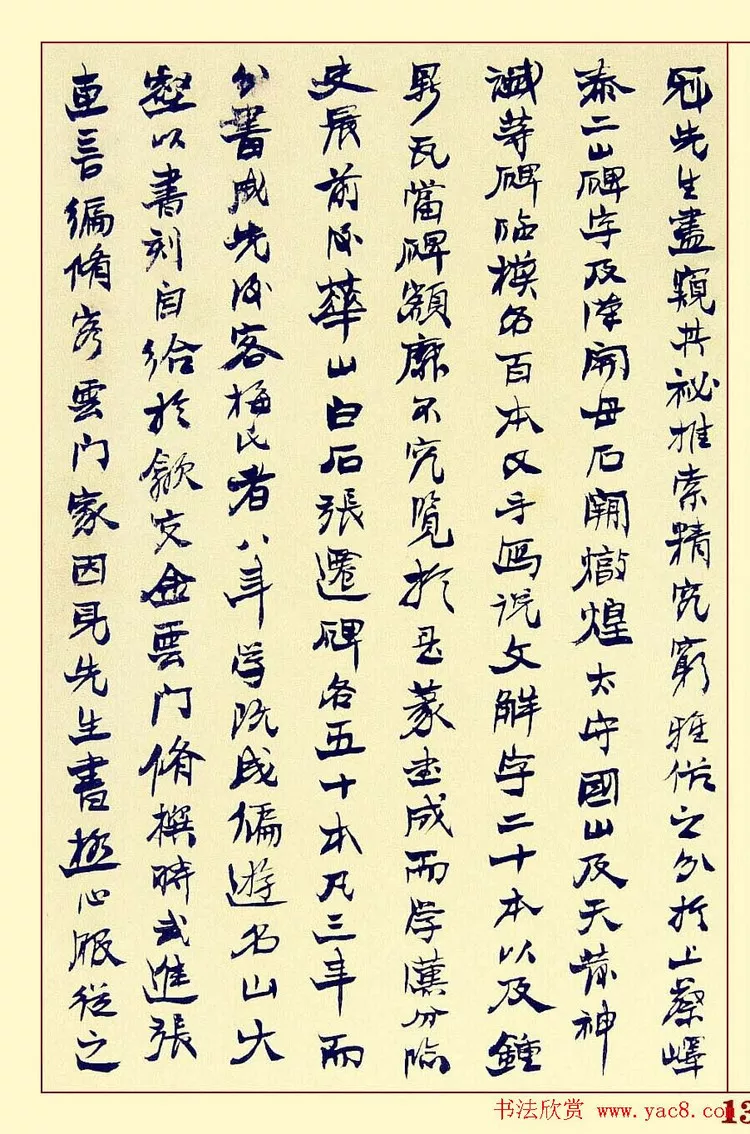 览先生盡窺其祕推索精究窮雅俗之分於上蔡嶧
泰二山碑字及漢開母石闕燉煌太守國山及天發神
讖等碑臨模各百本又手寫说文解字二十本以及鍾
鼎瓦當碑額靡不究覽於是篆書成而学漢分臨
史晨前後華山白石張遷碑各五十本凡三年而
分書成先後客梅氏者八年学既成徧遊名山大
壑以書刻自給於歙交金雲门脩撰時武進張
皋言編脩客雲门家因見先生書極心服從之
书法欣赏 www.yac8.com
13